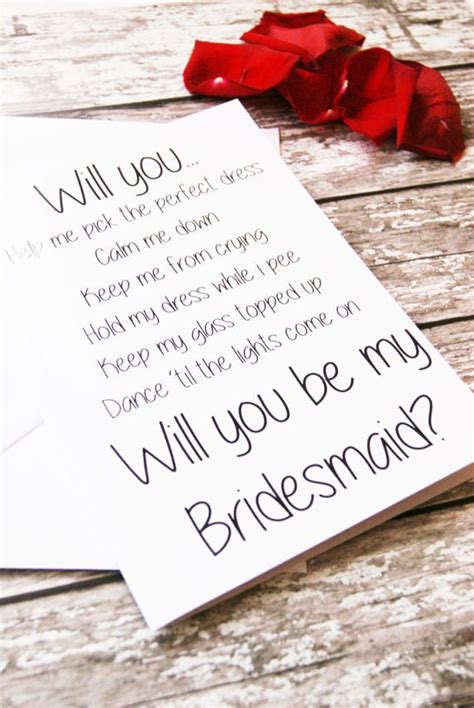 Will you...
Help me pick the perfect dress
Calm me down
Keep me from crying
Hold my dress while I pee
Keep my glass topped up
Dance 'til the lights come on
Will you be my
Bridesmaid?